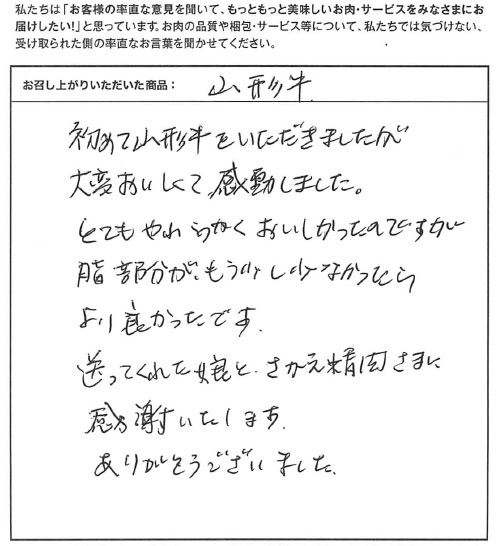 私たちは「お客様の率直な意見を聞いて、もっともっと美味しいお肉・サービスをみなさまにお
届けしたい!」と思っています。お肉の品質や梱包・サービス等について、私たちでは気づけない、
受け取られた側の率直なお言葉を聞かせてください。
お召し上がりいただいた商品： 山形牛
初めて山形牛をいただきましたが
大変おいしくて感動しました。
とてもやわらかくおいしかったのですが
脂部分が、もう少し少なかったら
より良かったです。
送ってくれた娘と、さかえ精肉さまに
感謝いたします。
ありがとうございました。